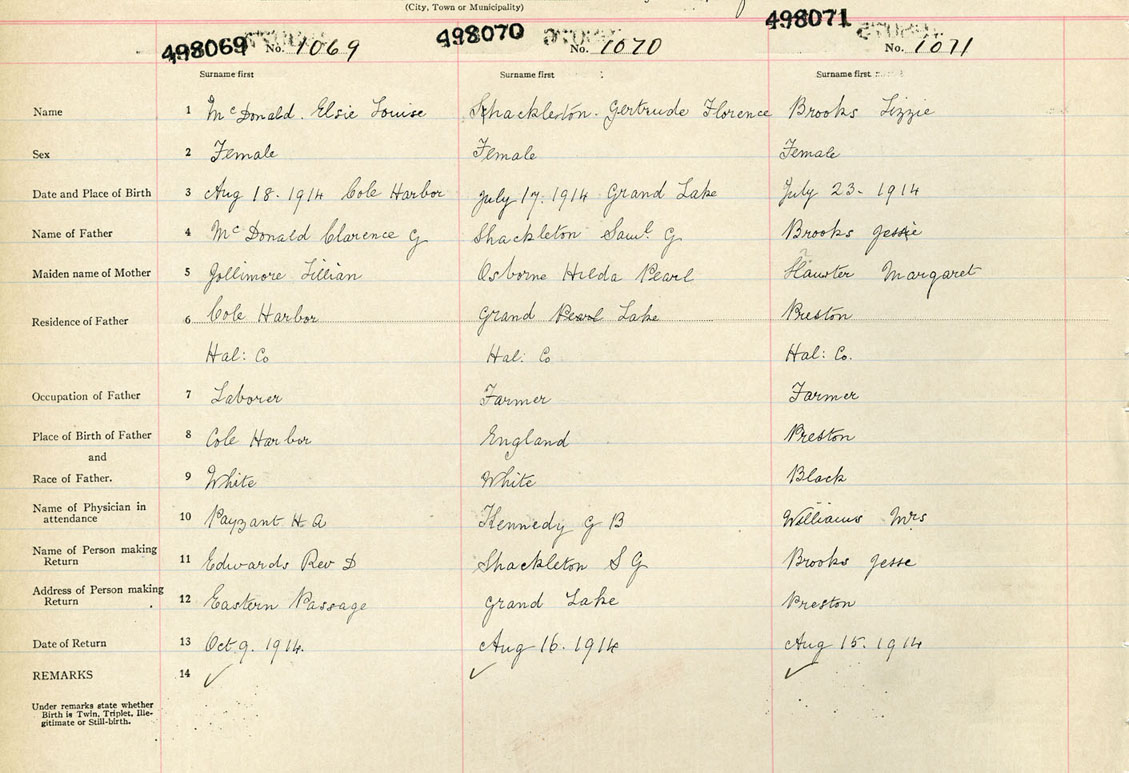 (City, Town or Municipality)
498069 No. 1069 498070 No. 1070 498071 No. 1071
Surname first Surname first Surname first
Name 1 McDonald. Elsie Louise Shackleton. Gertrude Florence Brooks Lizzie
Sex 2 Female Female Female
Date and Place of Birth 3 Aug 18. 1914 Cole Harbor July 17. 1914 Grand Lake July 23. 1914
Name of Father 4 McDonald Clarence G Shackleton Saml. G Brooks Jessie
Maiden name of Mother 5 Jollimore Lillian Osborne Hilda Pearl Margaret
Residence of Father 6 Cole Harbor Grand Pearl Lake Preston
Hal: Co Hal: Co Hal: Co.
Occupation of Father 7 Laborer Farmer Farmer
Place of Birth of Father 8 Cole Harbor England Preston
and
Race of Father. 9 White White Black
Name of Physician in
attendance 10 Payzant H A Kennedy G B Williams Mrs
Name of Person making
Return 11 Edwards Rev D Shackleton S G Brooks Jesse
Address of Person making
Return 12 Eastern Passage Grand Lake Preston
Date of Return 13 Oct 9. 1914. Aug 16. 1914 Aug 15. 1914
REMARKS 14 ✓ ✓ ✓
Under remarks state whether
Birth is Twin, Triplet, Ille-
gitimate or Still-birth.